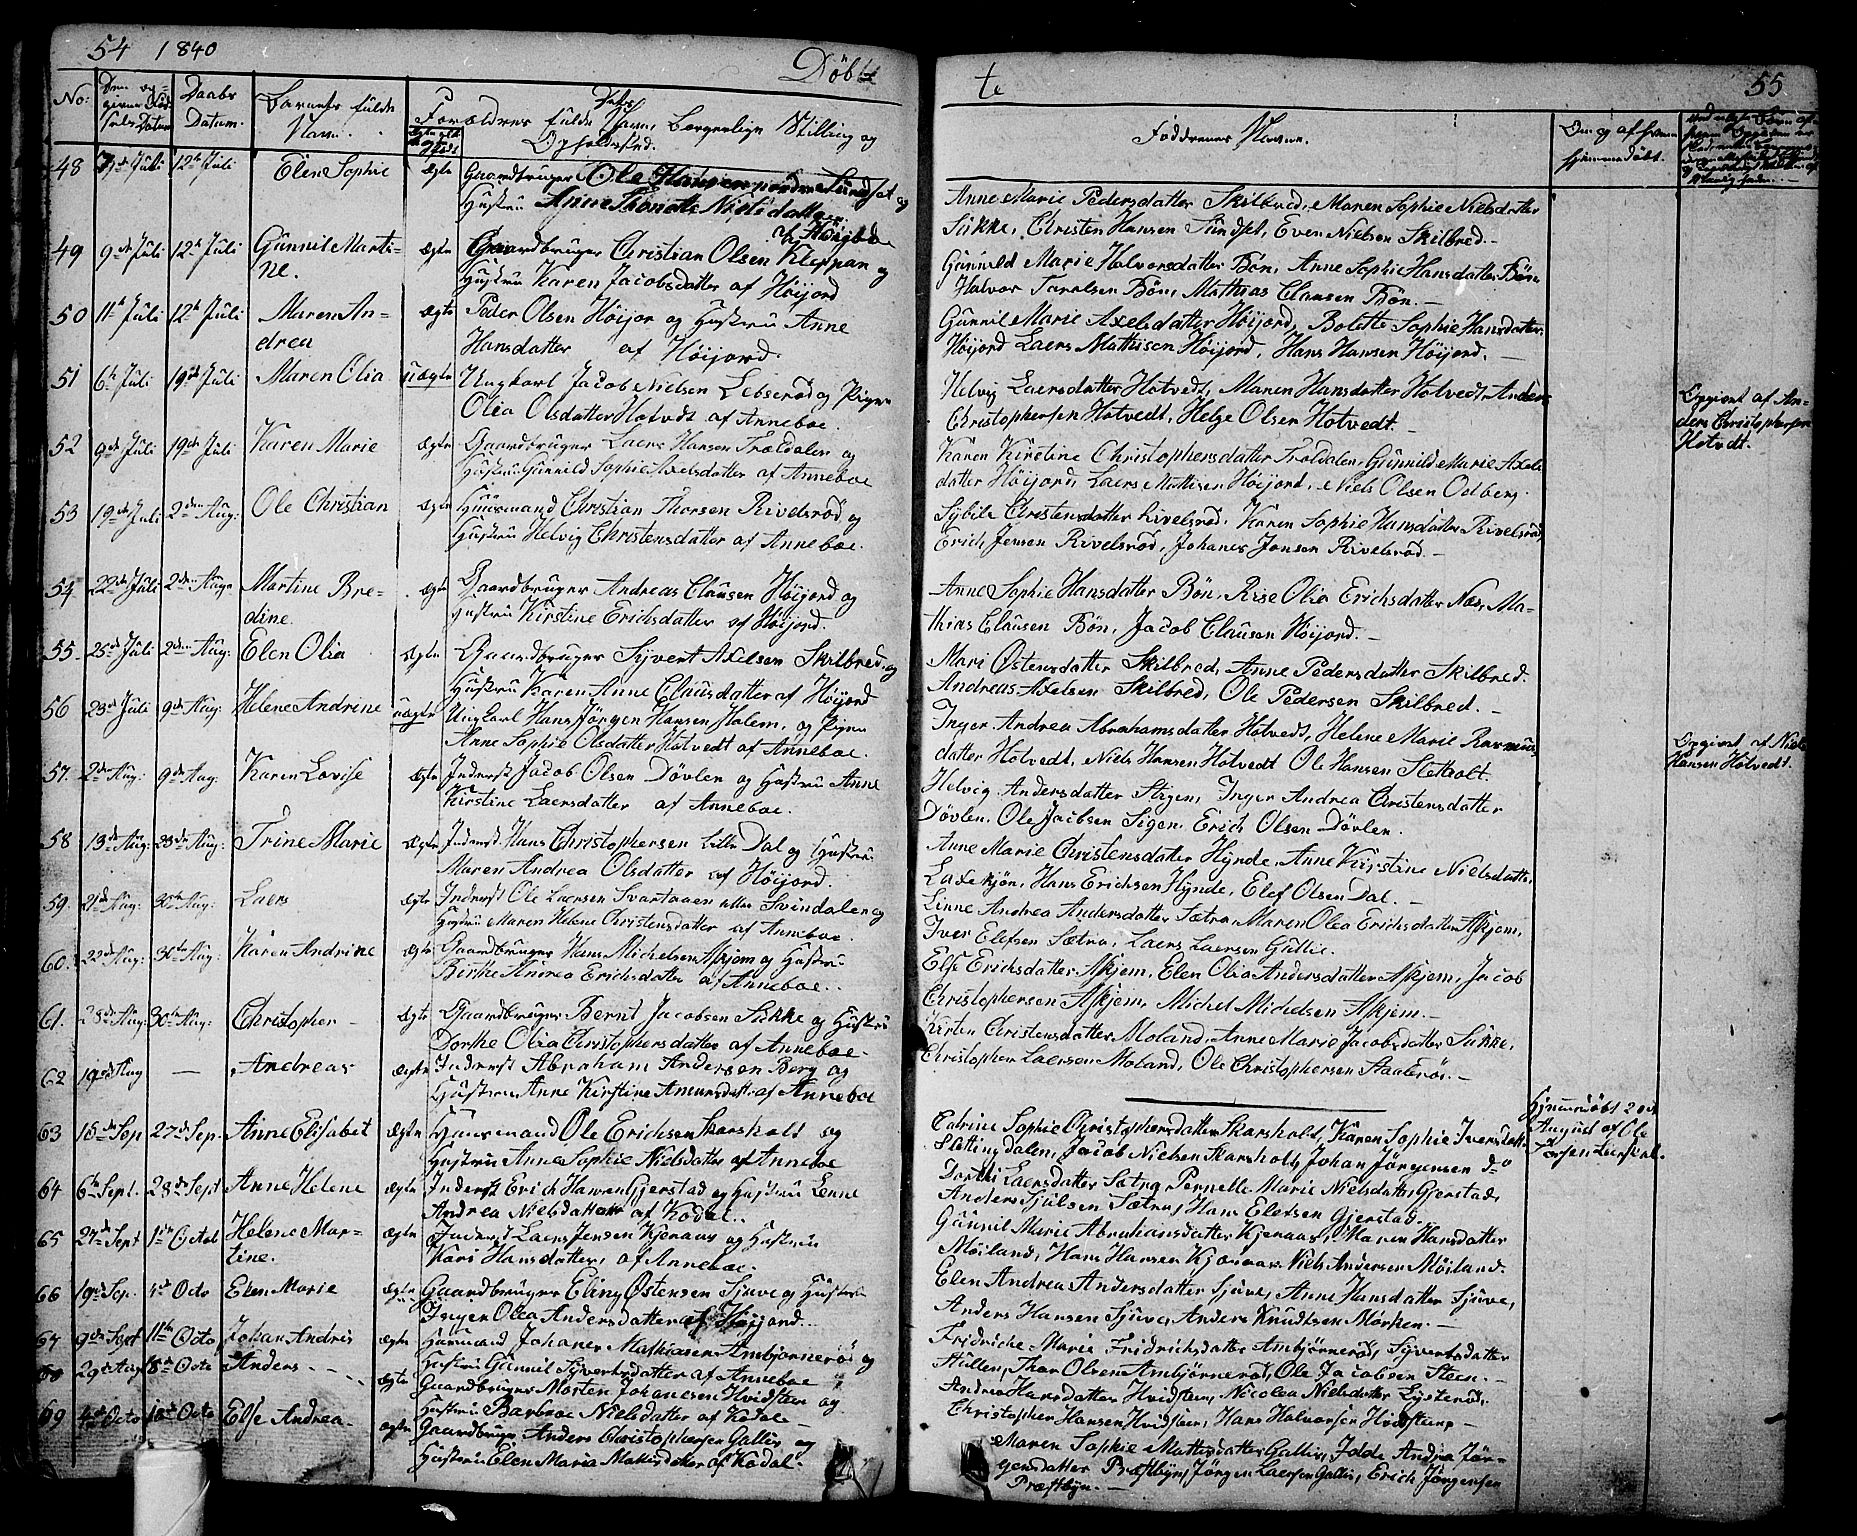 54 1840 Döb te 55
No: Daabs Datum. Barnets fulde Navn. Forældres fulde Navn, borgerlige Stilling og Opholdssted. Faddrenes Navne.
48 12te Juli Elen Sophie ægte Gaardbruger Ole Hansen Sundset og
Hustru Anne Nielsdatter
Anne Marie Pedersdatter Skilbred, Maren Sophie Nielsdatter
Sukke, Christen Hansen Sundset, Even Nielsen Skilbred.
49 9de Juli 12te Juli Gunnil Marti-
ne. ægte Gaardbruger Christian Olsen Kleppan og
Hustru Karen Jacobsdatter af Höijord
Gunnild Marie Halvorsdatter Bön, Anne Sophie Hansdatter Bön
Halvor Bön, Mathias Clausen Bön.
50 11te Juli 12te Juli Maren An-
drea ægte Peder Olsen Höijor og Hustru Anne
Hansdatter af Höijord.
Gunnil Marie Axelsdatter Höijord, Bolette Sophie Hansdatter
Höijord Laers Mathisen Höijord, Hans Hansen Höijord.
51 6te Juli 19de Juli Maren Olia uægte Ungkarl Jacob Nielsen Lebserød og Pigen
Olia Olsdatter Hotvedt af Anneboe.
Helvig Laersdatter Hotvedt, Maren Hansdatter Hotvedt, Anders
Christophersen Hotvedt, Helge Olsen Hotvedt.
Opgivet af An-
ders Christophersen
Hotvedt.
52 9de Juli 19de Juli Karen Marie ægte Gaardbruger Laers Hansen Troldalen og
Hustru Gunnild Sophie Axelsdatter af Anneboe
Karen Kirstine Christophersdatter Troldalen, Gunnild Marie Axels
datter Höijord, Laers Mattisen Höijord, Niels Olsen Odberg.
53 19de Juli 2den Aug: Ole Christian ægte Huusmand Christian Thorsen Rivelsrød og
Hustru Helvig Christensdatter af Anneboe.
Sybile Christensdatter Rivelsrød, Karen Sophie Hansdatter Rivelsrød,
Erich Jensen Rivelsrød, Johanes Jonsen Rivelsrød.
54 22de Juli 2den Aug: Martine Bre-
dine. ægte Gaardbruger Andreas Clausen Höijord og
Hustru Kirstine Erichsdatter af Höijord.
Anne Sophie Hansdatter Bön, Rise Olia Erichsdatter Næs, Ma-
thias Clausen Bön, Jacob Clausen Höijord.
55. 25de Juli 2den Aug: Elen Olia ægte Gaardbruger Syvert Axelsen Skilbred, og
Hustru Karen Anne Clausdatter af Höijord
Mari Östensdatter Skilbred, Anne Pedersdatter Skilbred.
Andreas Axelsen Skilbred, Ole Pedersen Skilbred.
56 23de Juli 9de Aug: Helene Andrine uægte Ungkarl Hans Jörgen Hansen Holem, og Pigen
Anne Sophie Olsdatter Hotvedt af Anneboe.
Inger Andrea Abrahamsdatter Hotvedt, Helene Marie Rasmus-
datter Hotvedt, Niels Hansen Hotvedt Ole Hansen Sletholt.
Opgivet af Niels
Hansen Hotvedt.
57. 2den Aug: 9de Aug: Karen Lovise ægte Inderst Jacob Olsen Dövlen og Hustru Anne
Kirstine Laersdatter af Anneboe.
Helvig Andersdatter Stigen, Inger Andrea Christensdatter
Dövlen, Ole Jacobsen Sigen, Erich Olsen Dövlen.
58 13de Aug: 23de Aug: Trine Marie ægte Inderst Hans Christophersen Lille Dal og Hustru
Maren Andrea Olsdatter af Höijord.
Anne Marie Christensdatter Hynde, Anne Kirstine Nielsdatter
Laxeskjön, Hans Erichsen Hynde, Elef Olsen Dal.
59. 21de Aug: 30te Aug: Laers ægte Inderst Ole Laersen Svartaaen eller Svindalen og
Hustru Maren Helene Christensdatter af Anneboe.
Linne Andrea Andersdatter Sætra, Maren Olea Erichsdatter Askjem,
Iver Elefsen Sætra, Laers Laersen Gullie.
60. 22de Aug: 30te Aug: Karen Andrine ægte Gaardbruger Hans Michelsen Askjem og Hustru
Birthe Andrea Erichsdatter af Anneboe.
Else Erichsdatter Askjem, Elen Olia Andersdatter Askjem, Jacob
Christophersen Askjem, Michel Michelsen Askjem.
61. 28de Aug: 30te Aug: Christopher ægte Gaardbruger Bernt Jacobsen Sukke og Hustru
Dorthe Olia Christophersdatter af Anneboe.
Kirsten Christensdatter Moland, Anne Marie Jacobsdatter Sukke,
Christopher Laersen Moland, Ole Christophersen
62 19de Aug — Andreas ægte Inderst Abraham Andersen Berg og
Hustru Anne Kirstine Amunsdatt: af Anneboe
Hjemmedöbt 20de
August af Ole
63 18de Sep 27de Sep. Anne Elisabet ægte Huusmand Ole Erichsen Skarsholt og
Hustru Anne Sophie Nielsdatter af Anneboe
Catrine Sophie Christophersdatter Skarsholt, Karen Sophie Iversdatt:
Slettingdalen, Jacob Nielsen Skarsholt, Johan Jörgensen do
64 6te Sept. 28de Sept Anne Helene ægte Inderst Erich Hansen Gjerstad og Hustru Lenne
Andrea Nielsdatter af Kodal.
Laersdatter Pernelle Marie Nielsdatter Gjerstad,
Anders Sjulsen Sætra, Hans Elefsen Gjerstad.
65 27de Sept Octob Helene Mar-
tine. ægte Inderst Laers Jensen Kjeraas og Hustru
Kari Hansdatter, af Anneboe.
Gunnil Marie Abrahamsdatter Kjeraas, Maren Hansdatter
Möiland, Hans Hansen Kjæraas, Niels Andersen Möiland.
66 19de Sep. 4de Octo Elen Marie ægte Gaardbruger Eling Östensen Sjuve og Hustru
Inger Olea Andersdatter af Höijord.
Elen Andrea Andersdatter Sjuve, Anne Hansdatter Sjuve,
Anders Hansen Sjuve, Anders Knudtsen Mörken.
67 9de Sept 11te Octo Johan Andris ægte Huusmand Johanes Mathiasen Ambjörnerö og
Hustru Gunnil Syvertsdatter af Anneboe
Fridriche Marie Fridrichsdatter Ambjörnerød, Syvertsdatter
Hullen, Thor Olsen Ambjörnerød, Ole Jacobsen Steen.
68 29de Aug 18de Octo Anders ægte Gaardbruger Morten Johansen Hvidsten og
Hustru Barbroe Nielsdatter af Kodal
Andrea Hansdatter Hvidsten, Nicolea Nielsdatter
Christopher Hansen Hvidsten, Hans Halvorsen Hvidsten,
69 4de Octo 18de Octo Else Andrea ægte Gaardbruger Anders Christophersen Gallis og
Hustru Elen Maria Mattisdatter af Kodal.
Maren Sophie Mattisdatter Gallis, Andrea Jör-
gensdatter Præstbyn, Jörgen Laersen Gallis, Erich Jörgensen
Præstbyn.